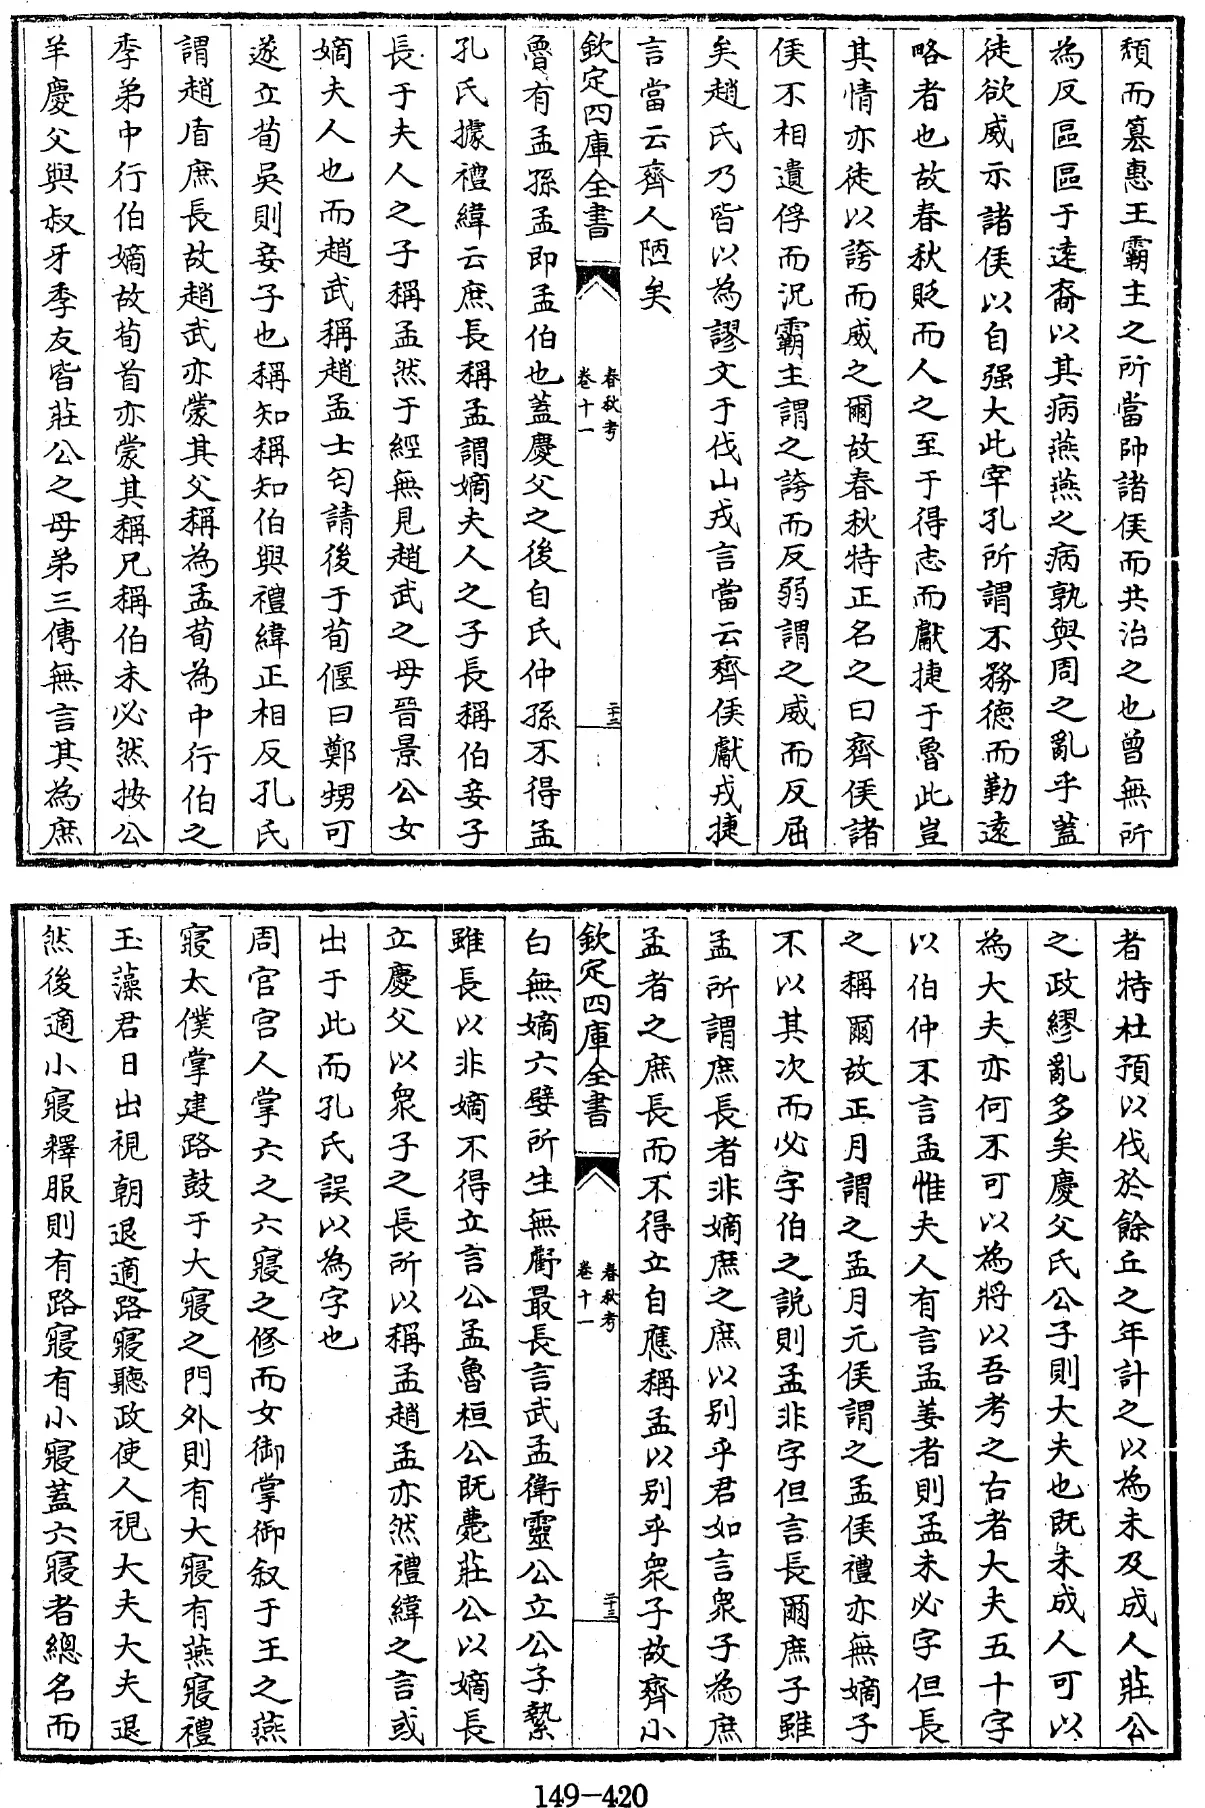 頽而簒惠王霸主之所當帥諸侯而共治之也曾無所
為反區區于逺裔以其病燕燕之病孰與周之亂乎蓋
徒欲威示諸侯以自强大此宰孔所謂不務徳而勤逺
略者也故春秋貶而人之至于得志而獻捷于魯此豈
其情亦徒以誇而威之爾故春秋特正名之曰齊侯諸
侯不相遺俘而況霸主謂之誇而反弱謂之威而反屈
矣趙氏乃皆以為謬文于伐山戎言當云齊侯獻戎捷
言當云齊人陋矣
欽定四庫全書
春秋考
卷十一
二十二
魯有孟孫孟即孟伯也蓋慶父之後自氏仲孫不得孟
孔氏據禮緯云庶長稱孟謂嫡夫人之子長稱伯妾子
長于夫人之子稱孟然于經無見趙武之母晉景公女
嫡夫人也而趙武稱趙孟士匄請後于荀偃曰鄭甥可
遂立荀吳則妾子也稱知稱知伯與禮緯正相反孔氏
謂趙盾庶長故趙武亦蒙其父稱為孟荀為中行伯之
季弟中行伯嫡故荀首亦蒙其稱兄稱伯未必然按公
羊慶父與叔牙季友皆莊公之母弟三傳無言其為庶
者特杜預以伐於餘丘之年計之以為未及成人莊公
之政繆亂多矣慶父氏公子則大夫也既未成人可以
為大夫亦何不可以為將以吾考之古者大夫五十字
以伯仲不言孟惟夫人有言孟姜者則孟未必字但長
之稱爾故正月謂之孟月元侯謂之孟侯禮亦無嫡子
不以其次而必字伯之説則孟非字但言長爾庶子雖
孟所謂庶長者非嫡庶之庶以别乎君如言衆子為庶
孟者之庶長而不得立自應稱孟以别乎衆子故齊小
欽定四庫全書
春秋考
卷十一
二十三
白無嫡六嬖所生無虧最長言武孟衛靈公立公子縶
雖長以非嫡不得立言公孟魯桓公既薨莊公以嫡長
立慶父以衆子之長所以稱孟趙孟亦然禮緯之言或
出于此而孔氏誤以為字也
周官宫人掌六之六寢之修而女御掌御叙于王之燕
寢太僕掌建路鼓于大寢之門外則有大寢有燕寢禮
玉藻君日出視朝退適路寢聽政使人視大夫大夫退
然後適小寢釋服則有路寢有小寢蓋六寢者總名而
149-420